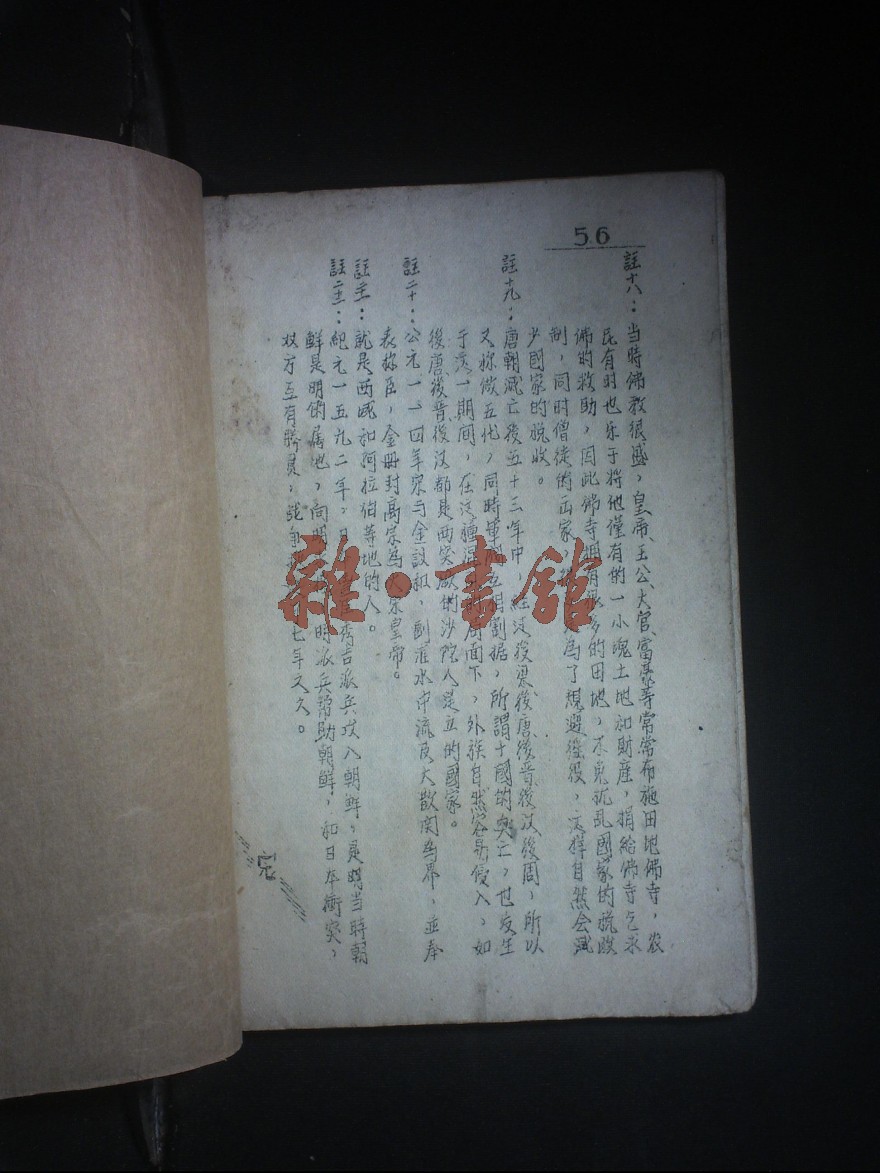 56
註十八：当時佛教很盛，皇帝、王公、大官、富豪等常常布施田地佛寺，农
民有时也乐于将他僅有的一小塊土地和財産，捐給佛寺乞求
佛的救助，因此佛寺拥有很多的田地，不免扰乱國家的税收
制，同时僧徒們出家，为了規避徭役，这样自然会减
少國家的税收。
註十九：唐朝滅亡後五十三年中，經过後梁後唐後晋後汉後周，所以
又称做五代，同時羣雄互相割据，所謂十國的興亡，也发生
于这一期間，在汉疆局面下，外族自然容易侵入，如
後唐後晋後汉都是西突厥的沙陀人建立的國家。
註二十：公元一一四年宋与金議和，劃淮水中流及大散関为界，並奉
表称臣，金册封高宗为大宋皇帝。
註二一：就是西域和阿拉伯等地的人。
註二二：紀元一五九二年，日秀吉派兵攻入朝鮮，是時当時朝
鮮是明的属地，向明時派兵帮助朝鮮，和日本衝突，
双方互有勝負，战争七年之久。
完
雜·書館